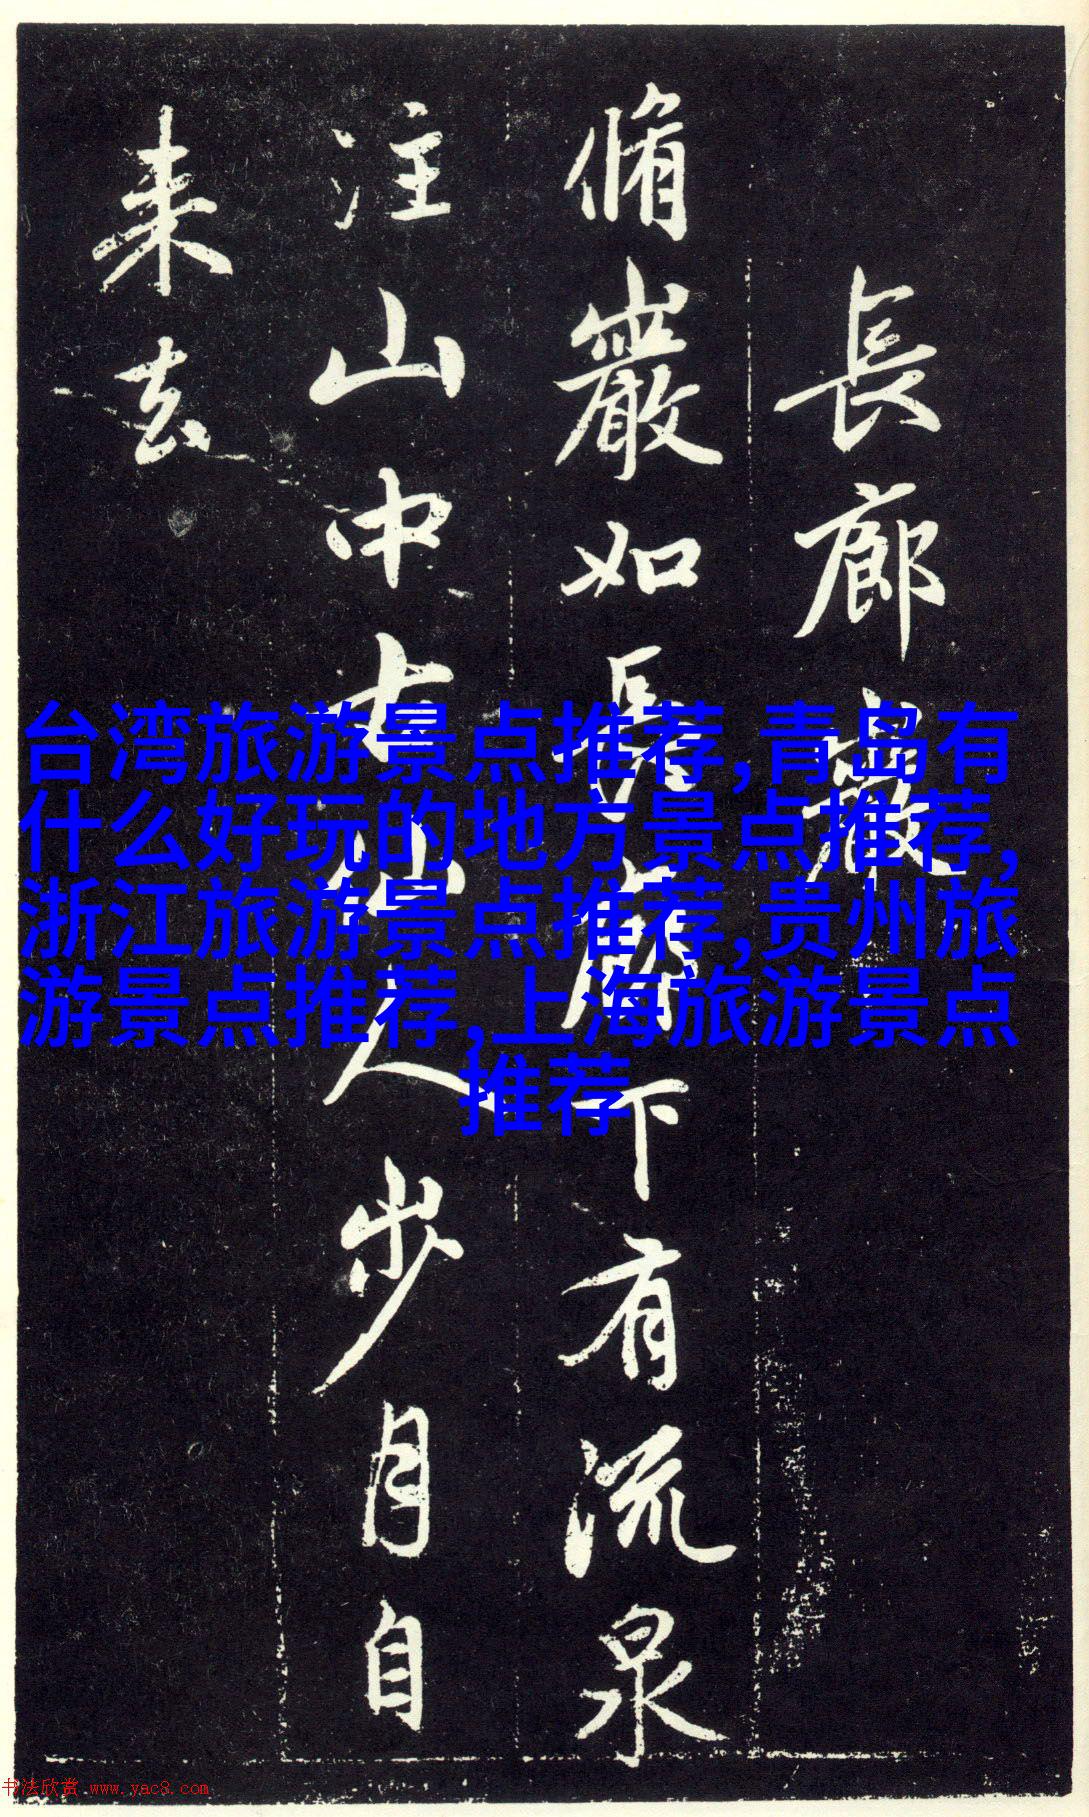 長廊巖
脩巖如長廊下有流泉
注山中古仙人步月自
来去
台湾旅游景点推荐,青岛有
什么好玩的地方景点推荐,
浙江旅游景点推荐,贵州旅
游景点推荐,上海旅游景点
推荐
书法欣赏 www.yac8.com